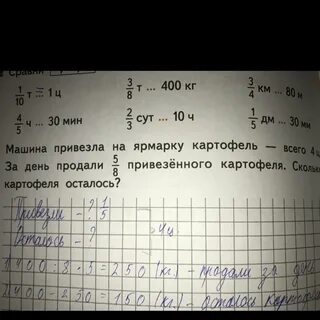 Сравни
1/10 т = 1 ц 3/8 т ... 400 кг 3/4 км ... 80 м
4/5 ч ... 30 мин 2/3 сут ... 10 ч 1/5 дм ... 30 мм
Машина привезла на ярмарку картофель — всего 4 ц.
За день продали 5/8 привезённого картофеля. Скольк
картофеля осталось?
Привезли - ?
Осталось - ? 4ц.
1) 400 : 8 · 5 = 250 (кг.) - продали за день
2) 400 - 250 = 150 (кг.) - осталось картофеля